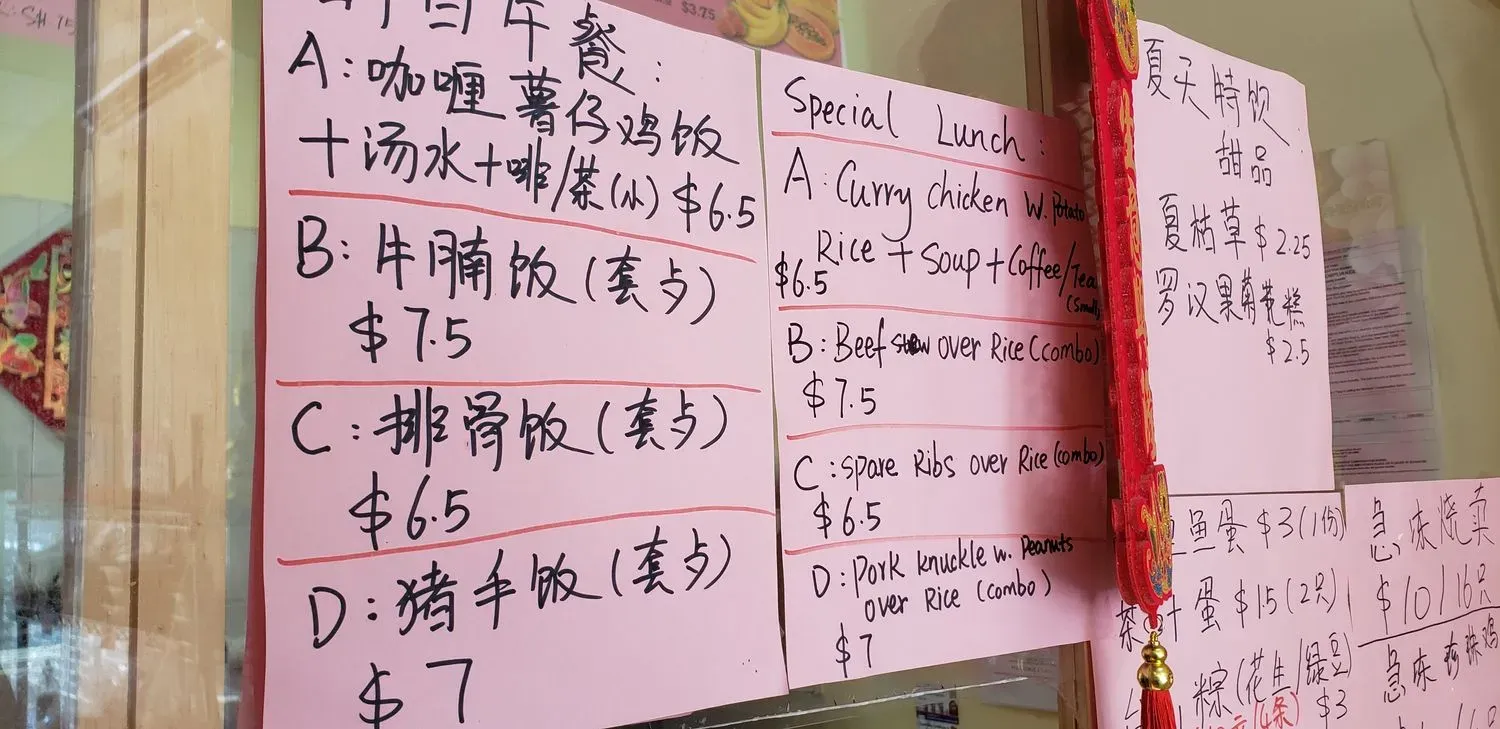 午餐:
A:咖喱薯仔鸡饭
+汤水+啡/茶(小) $6.5
B:牛腩饭(套歺)
$7.5
C:排骨饭(套歺)
$6.5
D:猪手饭(套歺)
$7
Special Lunch:
A:Curry chicken W. Potato
Rice + Soup + Coffee/Tea
$6.5 (small)
B:Beef stew over Rice (combo)
$7.5
C:Spare Ribs over Rice (combo)
$6.5
D:Pork knuckle w. Peanuts
over Rice (combo)
$7
$3.75
夏天特饮
甜品
夏枯草 $2.25
罗汉果菊花糕
$2.5
鱼蛋 $3(1份)
茶叶蛋 $1.5(2只)
粽(花生/绿豆)
$3
(4条)
急冻烧卖
$10/16只
急冻珍珠鸡